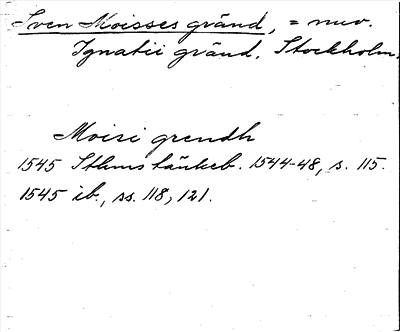 Sven Moisses gränd, = nuv.
Ignatii gränd, Stockholm.
Moisi grendh
1545 Sthms tänkeb. 1544-48, s. 115.
1545 ib., ss. 118, 121.